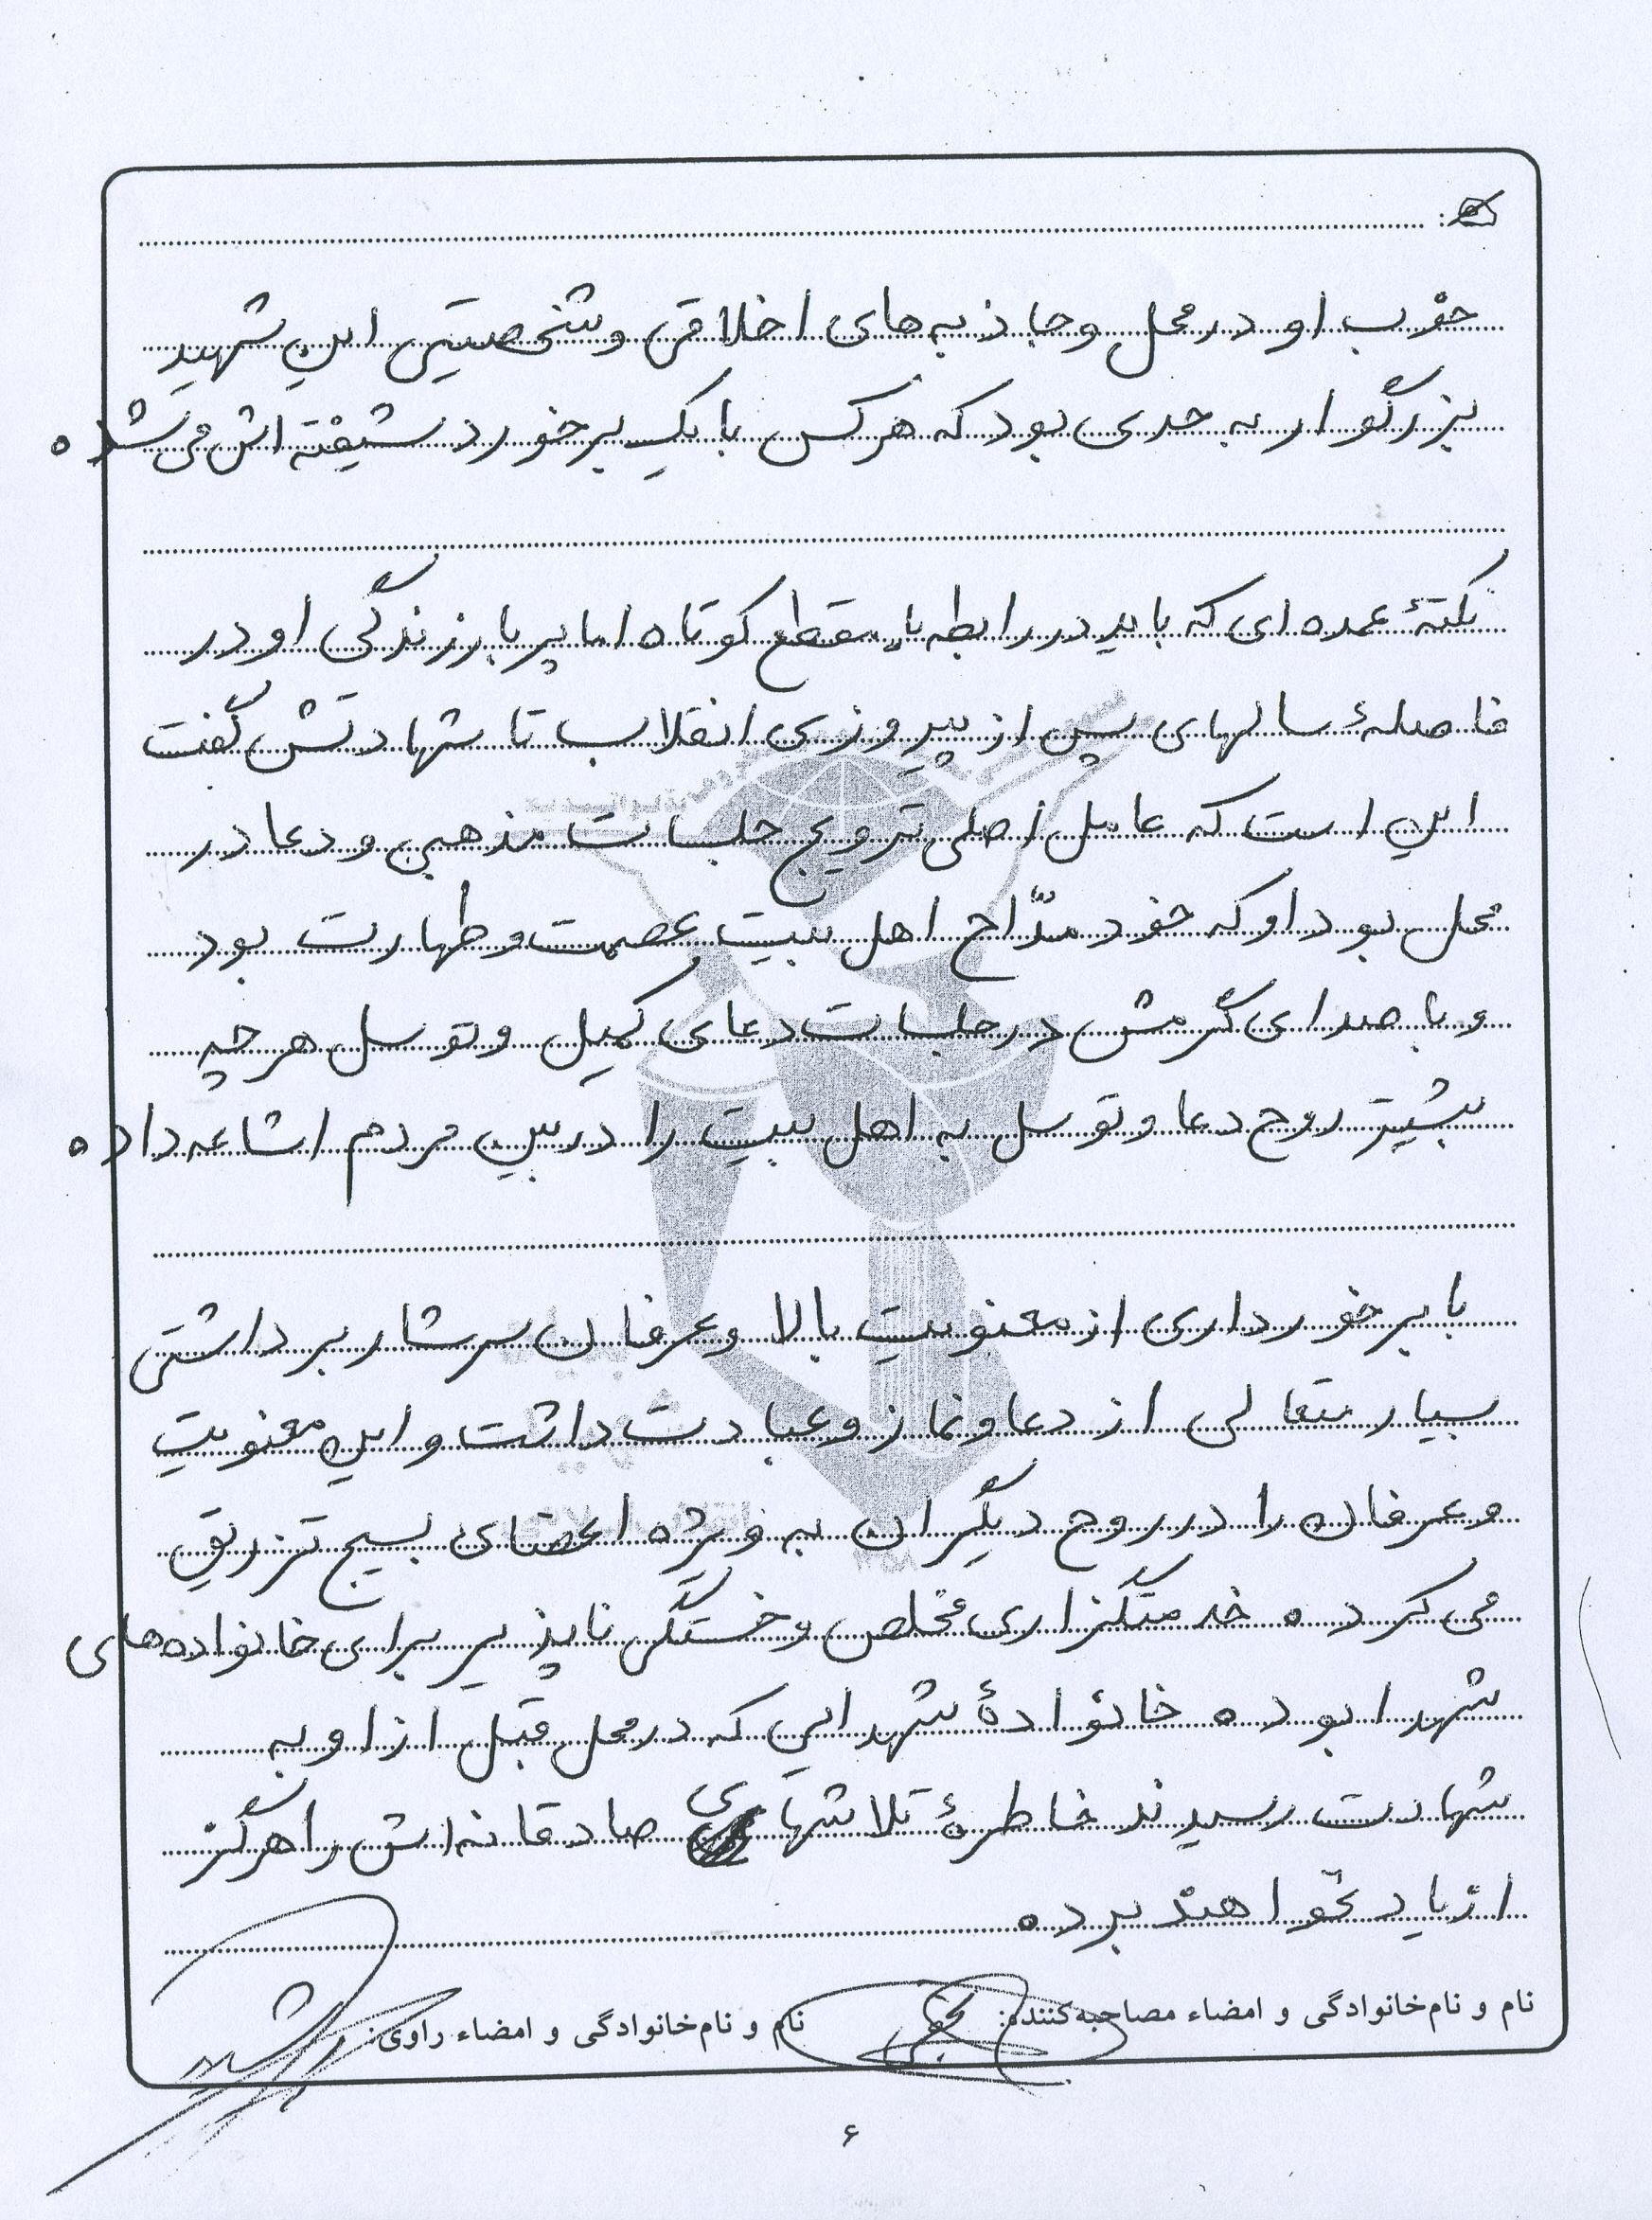 خوب او در محل و جاذبه‌های اخلاقی و شخصیتی این شهید
بزرگوار به حدی بود که هر کس با یک برخورد شیفته اش می‌شد.
نکتهٔ عمده ای که باید در رابطه با مقطع کوتاه اما پر بار زندگی او در
فاصلهٔ سالهای پس از پیروزی انقلاب تا شهادتش گفت
این است که عامل اصلی ترویج جلسات مذهبی و دعا در
محل بود او که خود مدّاح اهل بیت عصمت و طهارت بود
و با صدای گرمش در جلسات دعای کمیل و توسل هر چه
بیشتر روح دعا و توسل به اهل بیت را در بین مردم اشاعه داد.
با برخورداری از معنویت بالا و عرفان سرشار برداشتی
بسیار متعالی از دعا و نماز و عبادت داشت و این معنویت
و عرفان را در روح دیگران به ویژه اعضای بسیج تزریق
می کرد. خدمتگزاری مخلص و خستگی ناپذیر برای خانواده‌های
شهدا بود. خانوادهٔ شهدایی که در محل قبل از او به
شهادت رسیدند خاطرهٔ تلاشهای صادقانه‌اش را هرگز
از یاد نخواهند برد.
نام و نام‌خانوادگی و امضاء مصاحبه‌کننده:
نام و نام‌خانوادگی و امضاء راوی:
۶